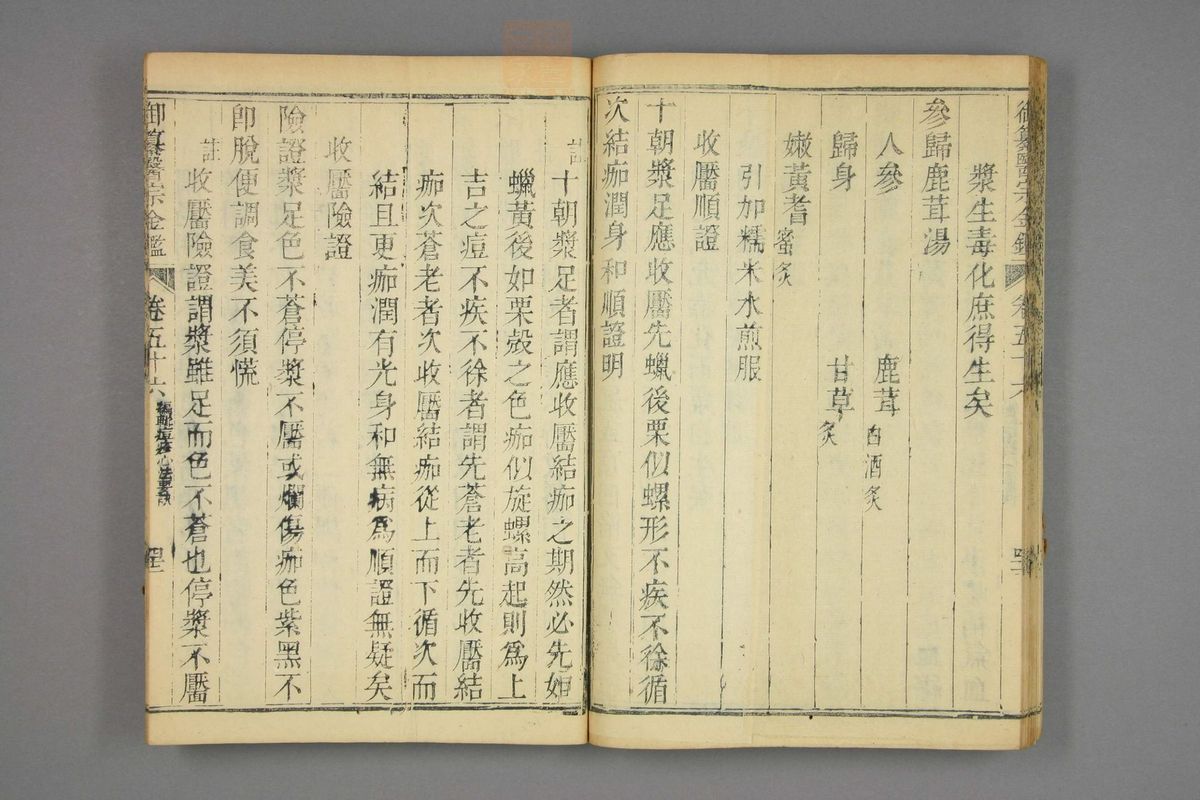 御纂醫宗金鑑 卷五十六
漿生毒化庶得生矣
參歸鹿茸湯
人參 鹿茸白酒炙
歸身 甘草炙
嫩黃耆蜜炙
引加糯米水煎服
收靨順證
十朝漿足應收靨先蠟後栗似螺形不疾不徐循
次結痂潤身和順證明
註十朝漿足者謂應收靨結痂之期然必先如
蠟黃後如栗殼之色痂似旋螺高起則爲上
吉之痘不疾不徐者謂先蒼老者先收靨結
痂次蒼老者次收靨結痂從上而下循次而
結且更痂潤有光身和無病爲順證無疑矣
收靨險證
險證漿足色不蒼停漿不靨或爛傷痂色紫黑不
卽脫便調食美不須慌
註收靨險證謂漿雖足而色不蒼也停漿不靨
御纂醫宗金鑑 卷五十六 編輯痘疹心法要訣